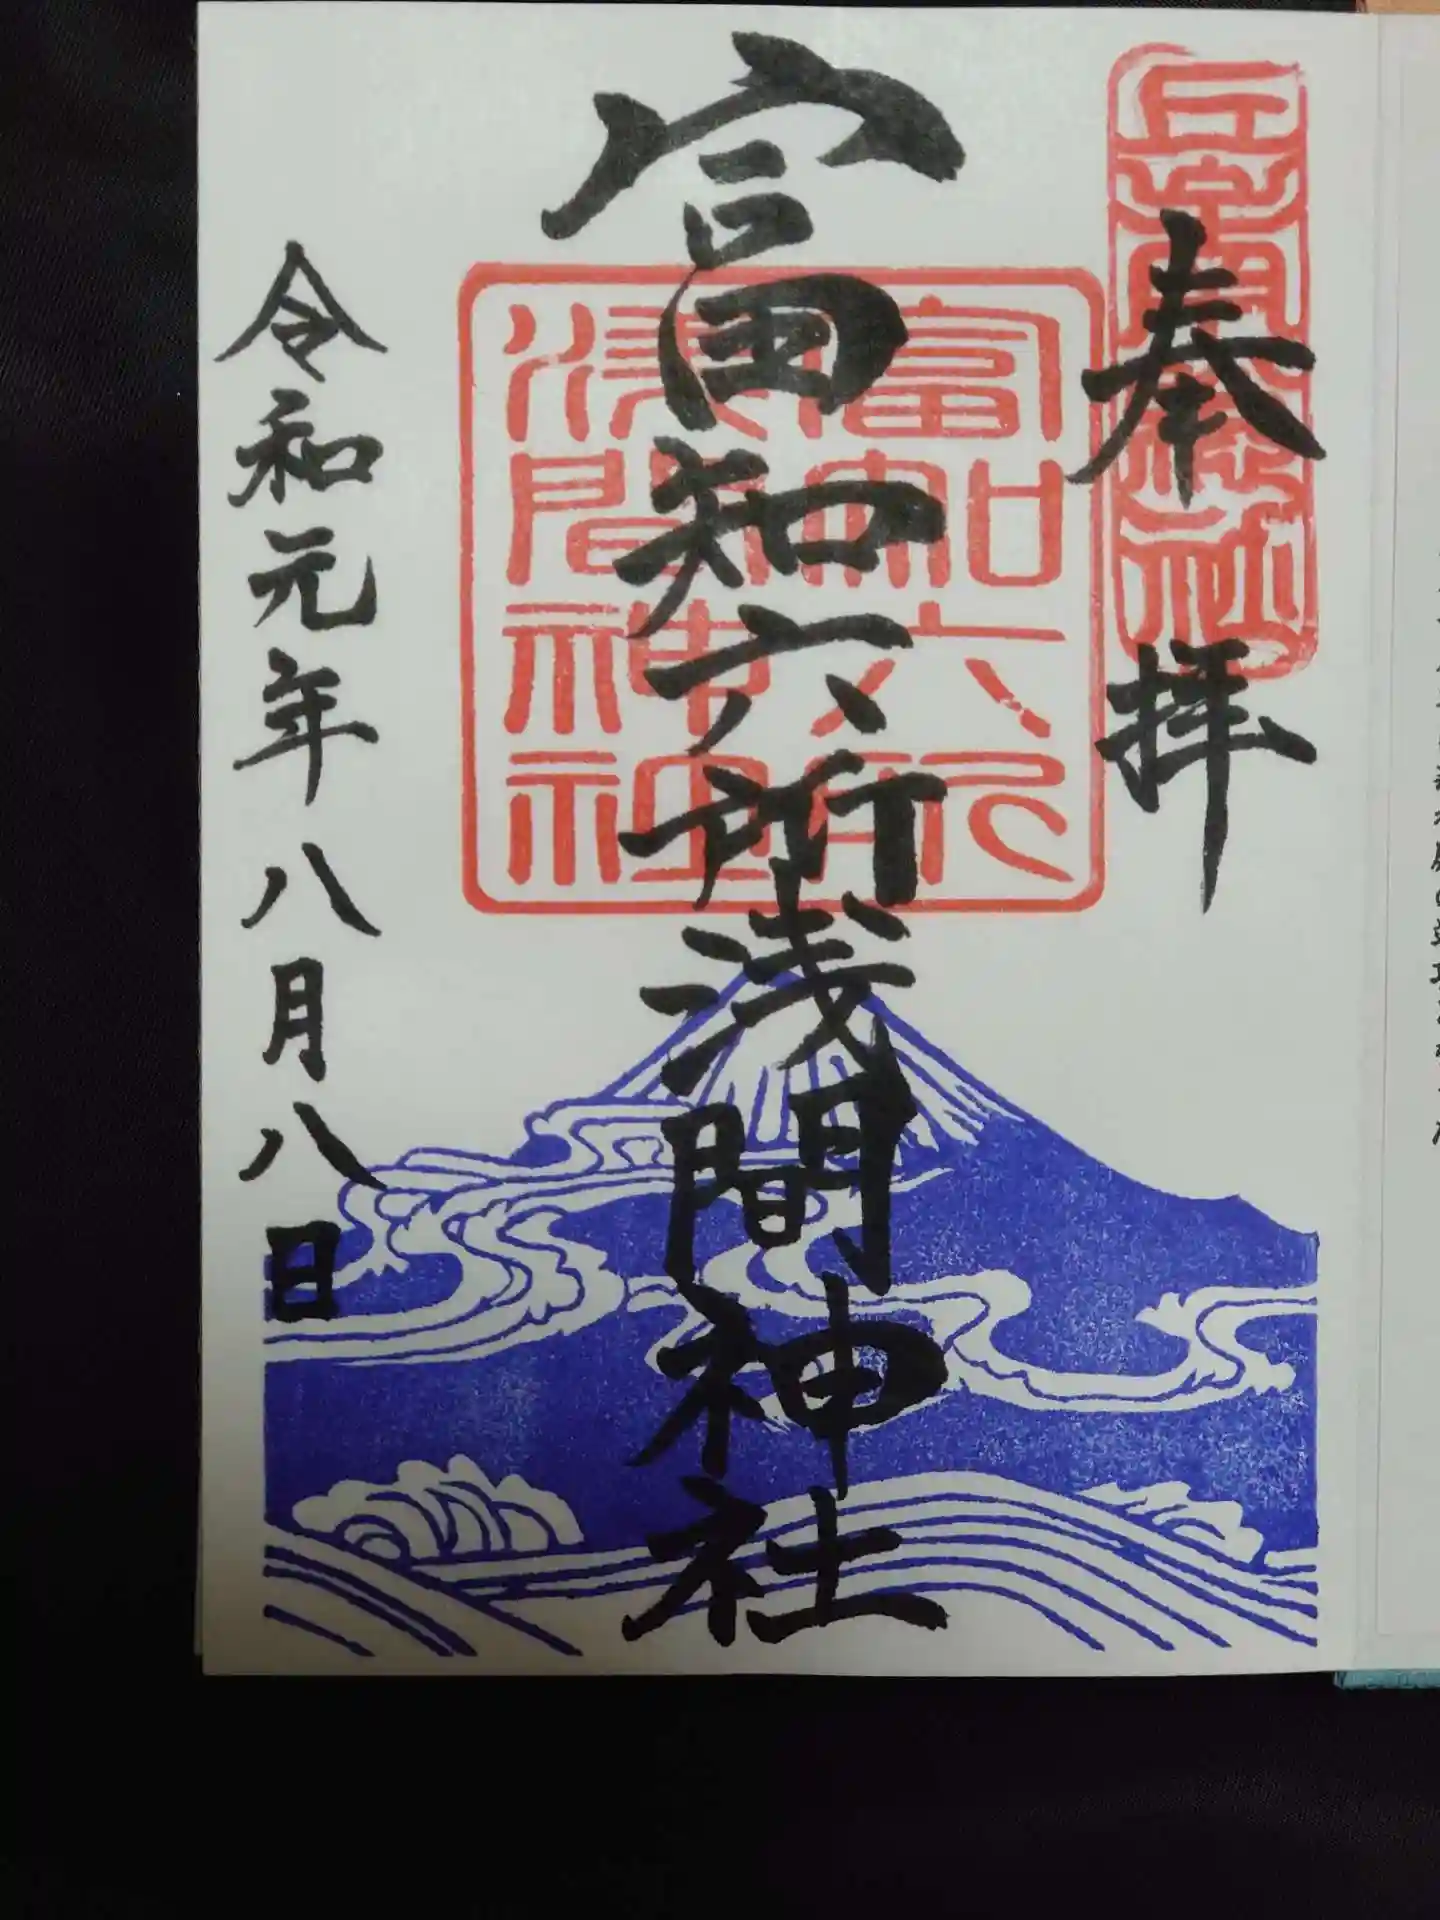 奉拝
富知六所浅間神社
富知六所
浅間神社
令和元年八月八日